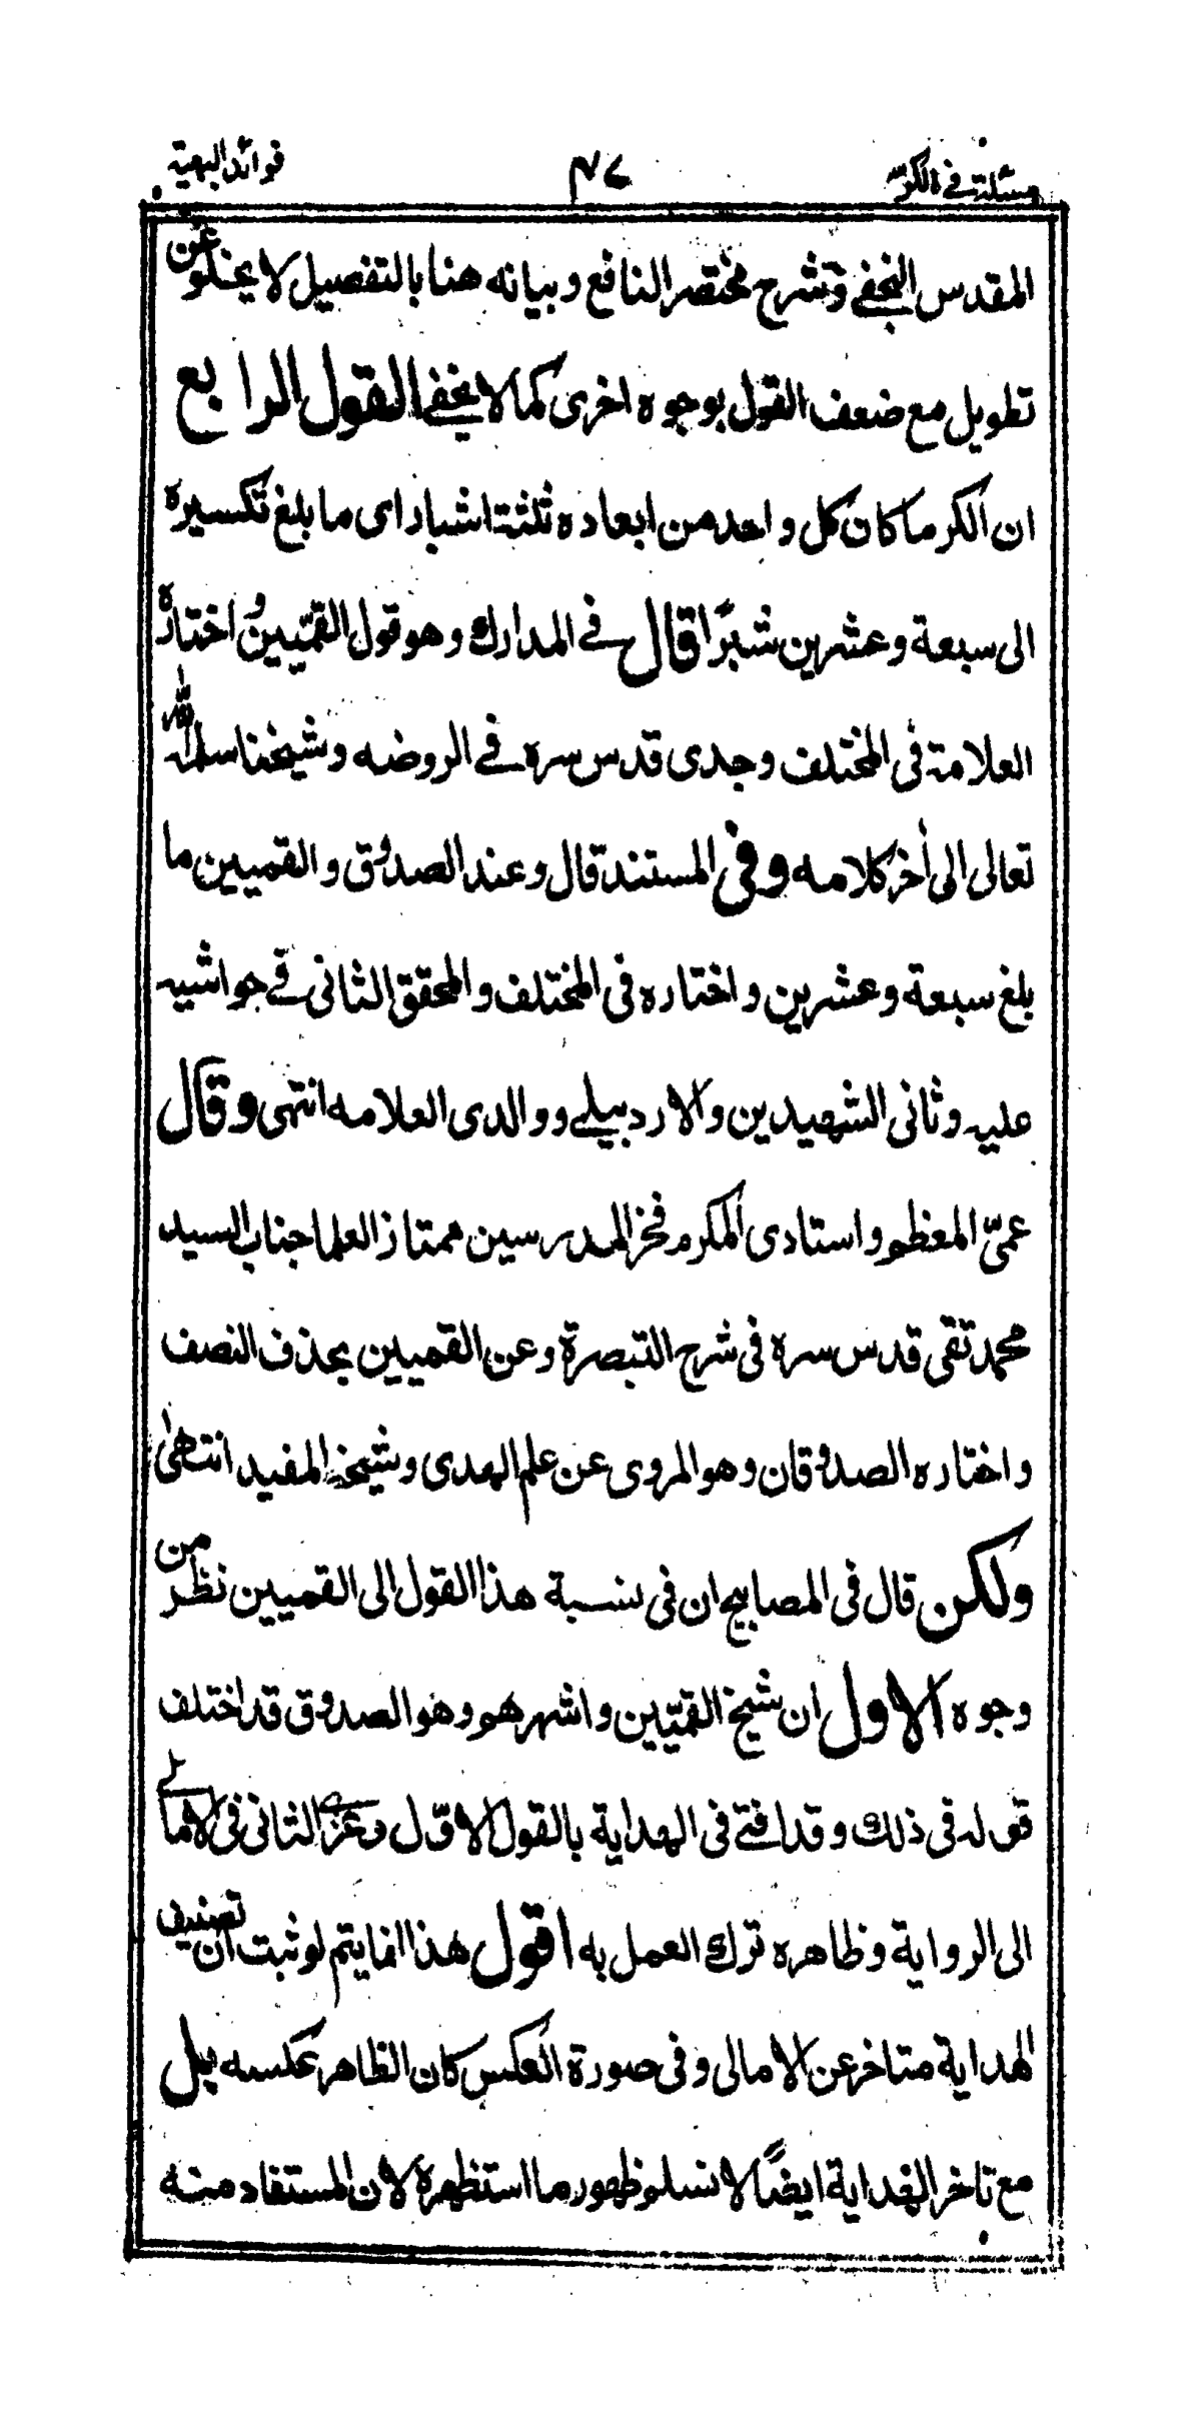 مسئلة في الكر ۴۷ فوائد البهية
المقدس النجفي في شرح مختصر النافع وبيانه هنا بالتفصيل لا يخلو عن
تطويل مع ضعف القول بوجوه اخرى كما لا يخفى القول الرابع
ان الكر ما كان كل واحد من ابعاده ثلثة اشبار اى ما بلغ تكسيره
الى سبعة وعشرين شبرًا قال فى المدارك وهو قول القمّيين واختاره
العلامة فى المختلف وجدى قدس سره فى الروضه وشيخنا سلمه الله
تعالى الى اخر كلامه وفى المستند قال وعند الصدوق والقميين ما
بلغ سبعة وعشرين واختاره فى المختلف والمحقق الثانى فى حواشيه
عليه وثانى الشهيدين والاردبيلى ووالدى العلامه انتهى وقال
عمىّ المعظم واستادى المكرم فخر المدرسين ممتاز العلما جناب السيد
محمد تقى قدس سره فى شرح التبصرة وعن القميين بحذف النصف
واختاره الصدوقان وهو المروى عن علم الهدى وشيخه المفيد انتهىٰ
ولكن قال فى المصابيح ان فى نسبة هذا القول الى القميين نظر من
وجوه الاول ان شيخ القمّيين واشهرهم وهو الصدوق قد اختلف
قوله فى ذلك وقد افتى فى الهداية بالقول الاوّل وعزى الثانى فى الامالى
الى الرواية وظاهره ترك العمل به اقول هذا انما يتم لو ثبت ان تصنيف
الهداية متاخر عن الامالى وفى صورة العكس كان الظاهر عكسه بل
مع تاخر الهداية ايضًا لا نسلم ظهور ما استظهره لان المستفاد منه